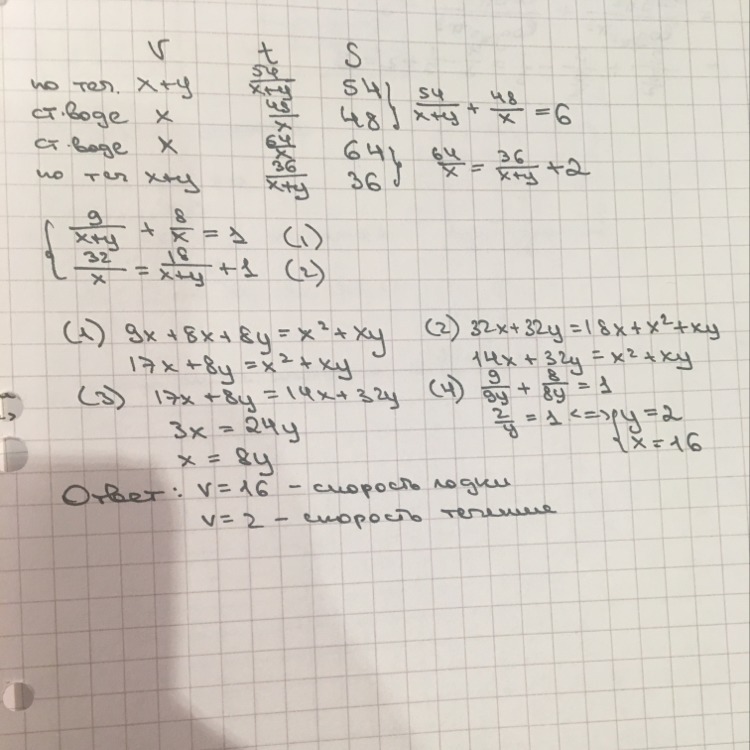 v t S
по теч. x+y 54/(x+y) 54
ст. воде x 48/x 48 } 54/(x+y) + 48/x = 6
ст. воде x 64/x 64
по теч x+y 36/(x+y) 36 } 64/x = 36/(x+y) + 2
{ 9/(x+y) + 8/x = 1 (1)
32/x = 18/(x+y) + 1 (2)
(1) 9x + 8x + 8y = x² + xy
17x + 8y = x² + xy
(2) 32x + 32y = 18x + x² + xy
14x + 32y = x² + xy
(3) 17x + 8y = 14x + 32y
3x = 24y
x = 8y
(4) 9/9y + 8/8y = 1
2/y = 1 <=> { y = 2
x = 16
Ответ: v = 16 - скорость лодки
v = 2 - скорость течение